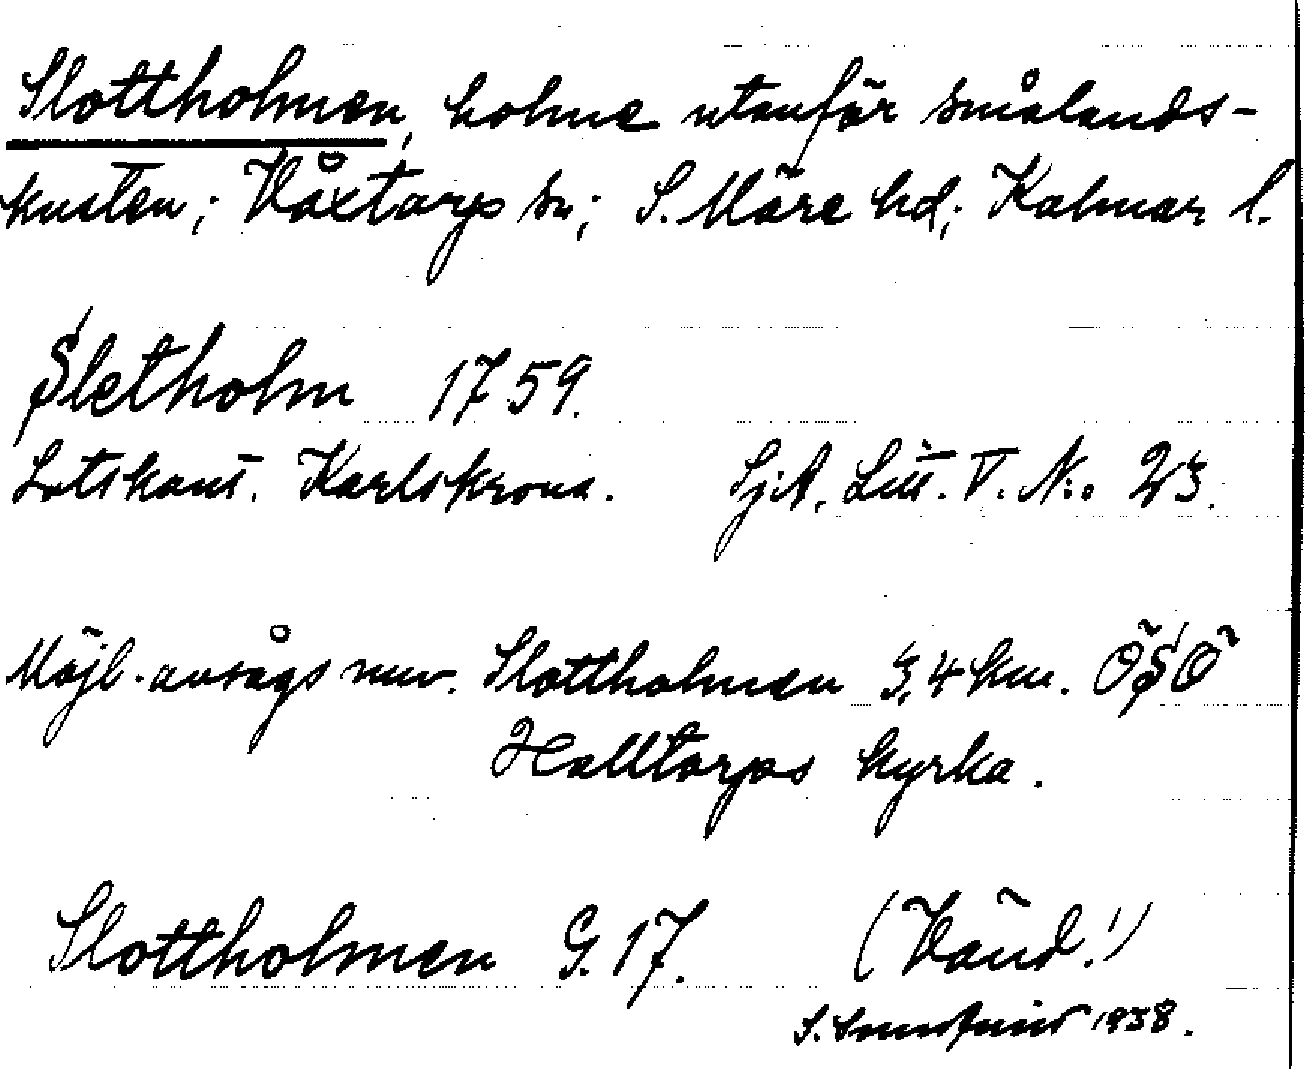 Slottholmen, holme utanför smålands-
kusten; Våxtorps sn; S. Möre hd; Kalmar l.
Sletholm 1759.
Lotskont. Karlskrona. SjA. Litt. V. No. 23.
Möjl. avsågs nuv. Slottholmen 3,4 km. ÖSÖ
Halltorps kyrka.
Slottholmen G. 17. (Vänd!)
S. 1938.